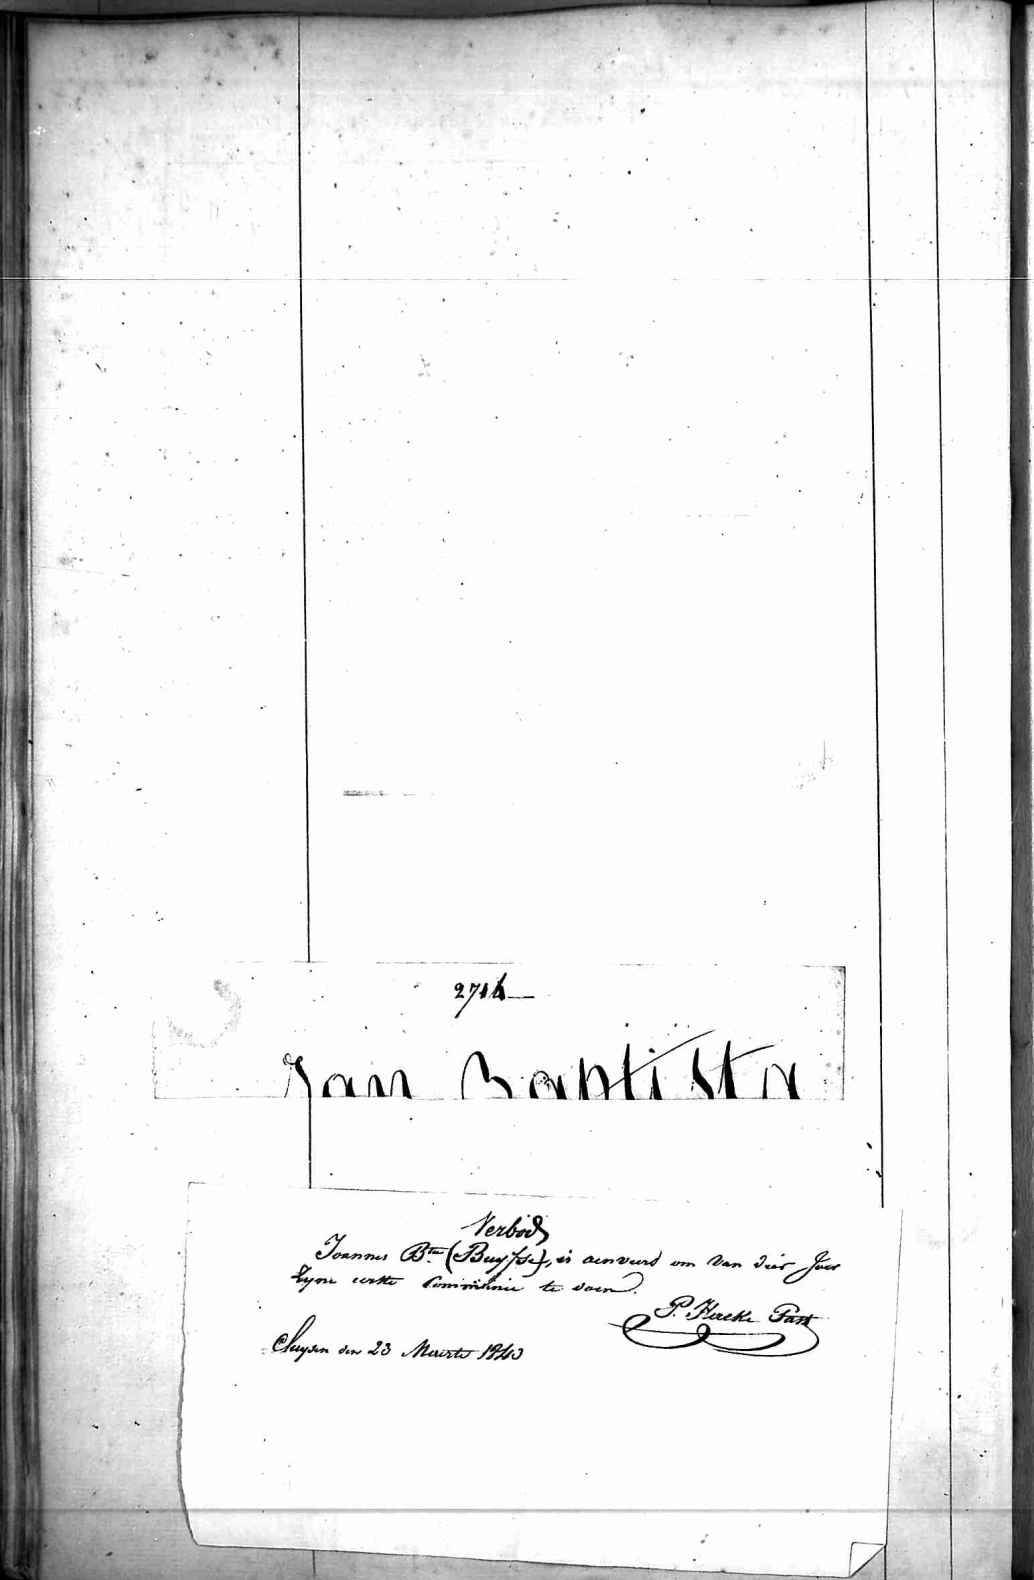 2714
Jan Baptista
Verbod
Joannes Bte (Buysse), is aenveerd om van dier Jaer
Zyne eerste Communie te doen.
P. Hercke Past
Cluysen den 23 Meerte 1843